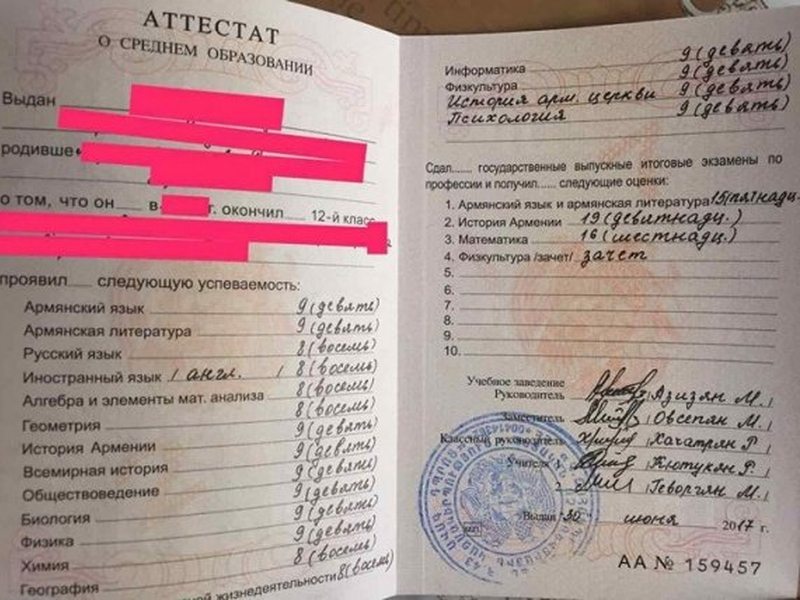 АТТЕСТАТ
О СРЕДНЕМ ОБРАЗОВАНИИ
Выдан
родивше
о том, что он в г. окончил 12-й класс
проявил следующую успеваемость:
Армянский язык 9 (девять)
Армянская литература 9 (девять)
Русский язык 8 (восемь)
Иностранный язык / англ. / 8 (восемь)
Алгебра и элементы мат. анализа 8 (восемь)
Геометрия 8 (восемь)
История Армении 9 (девять)
Всемирная история 9 (девять)
Обществоведение 9 (девять)
Биология 9 (девять)
Физика 9 (девять)
Химия 9 (девять)
География 8 (восемь)
жизнедеятельности 8 (восемь)
Информатика 9 (девять)
Физкультура 9 (девять)
История арм. церкви 9 (девять)
Психология 9 (девять)
Сдал...... государственные выпускные итоговые экзамены по
профессии и получил...... следующие оценки:
1. Армянский язык и армянская литература 15 (пятнадц.)
2. История Армении 19 (девятнадц.)
3. Математика 16 (шестнадц.)
4. Физкультура /зачет/ зачет
5.
6.
7.
8.
9.
10.
Учебное заведение
Руководитель / Азизян М. /
Заместитель / Овсепян М. /
Классный руководитель / Хачатрян Г. /
Учителя 1. / Кютукян Г. /
2. / Геворгян М. /
Выдан 30 июня 2017 г.
АА № 159457